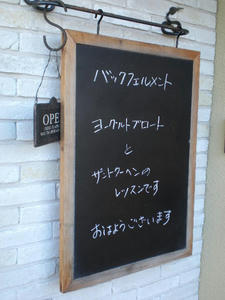 バックフェルメント
ヨーグルトブロート
と
ザントクーヘンの
レッスンです
おはようございます
OPEN